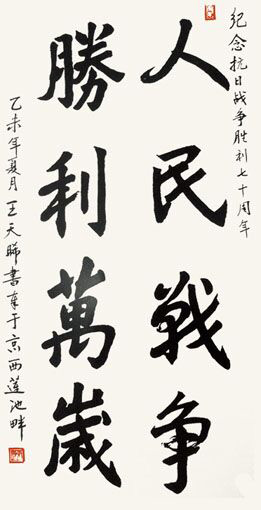 纪念抗日战争胜利七十周年
人民戰争
勝利萬歲
乙未年夏月王天晞書車于京西莲池畔